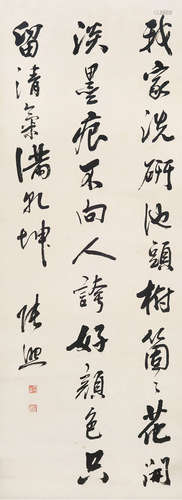 我家洗研池頭樹箇〻花開
淡墨痕不向人誇好顏色只
留清氣滿乾坤